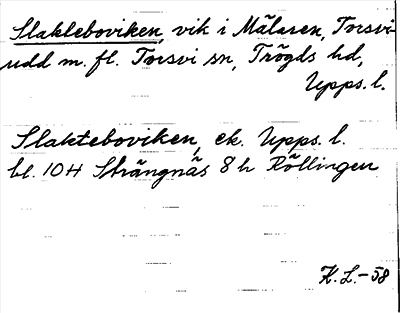 Slakteboviken, vik i Mälaren, Torsvi-
udd m. fl. Torsvi sn, Trögds hd,
Upps. l.
Slakteboviken, ek. Upps. l.
bl. 10H Strängnäs 8 h Källingen
K. L. - 58